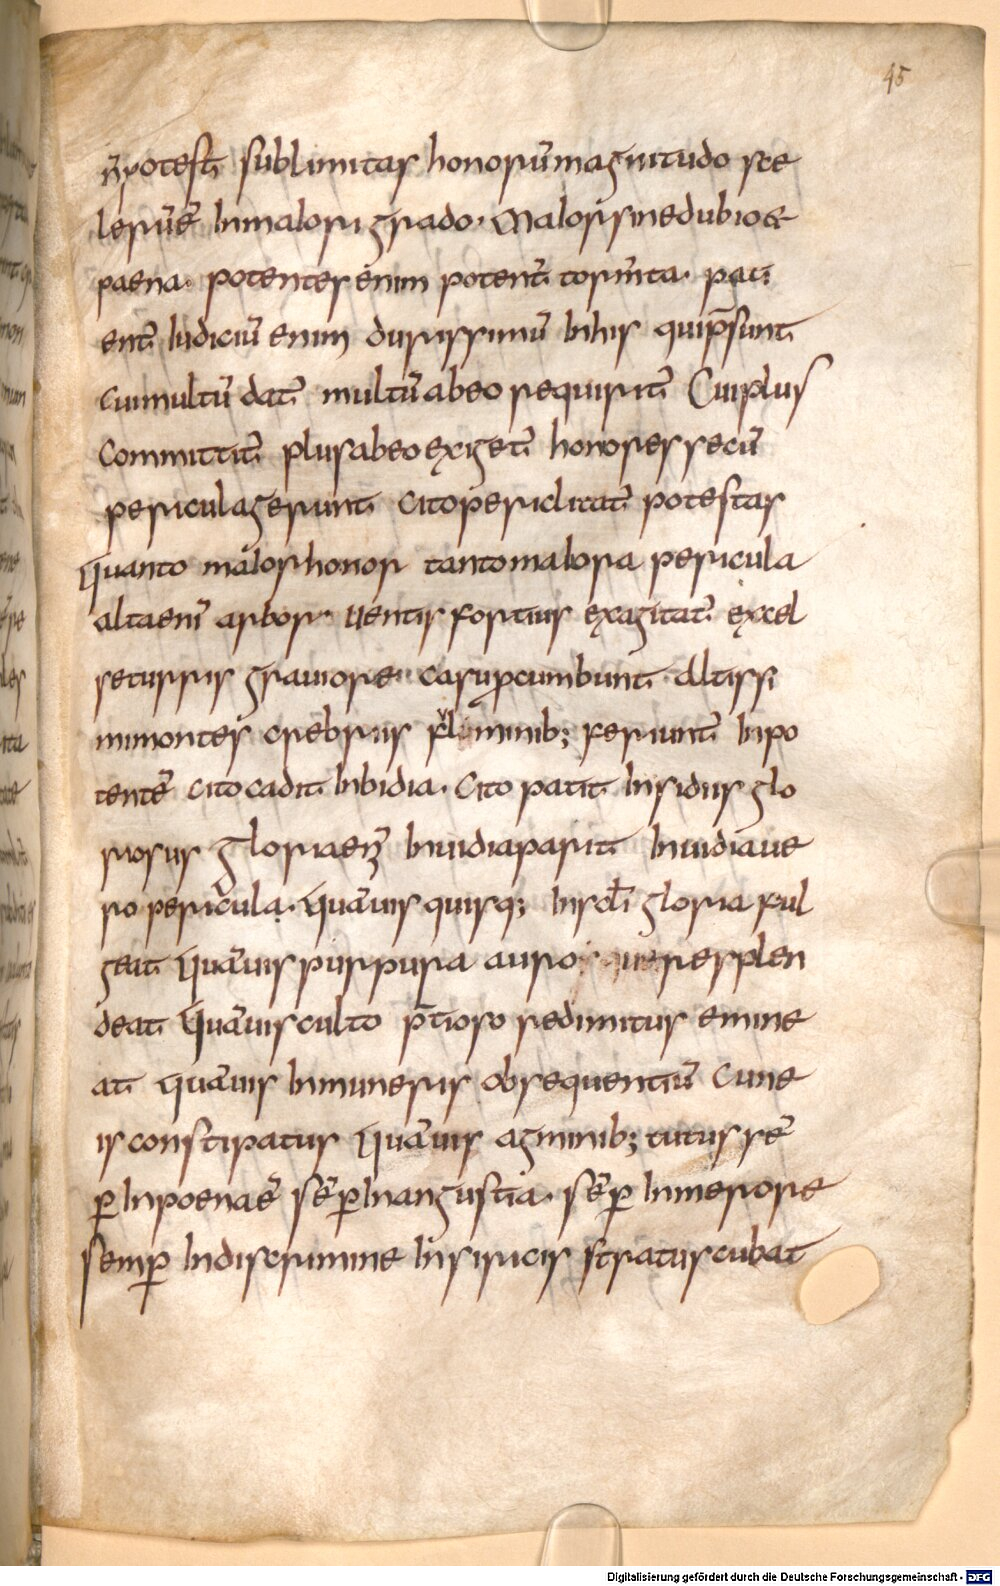 45
n̄ potest̄ sublimitas honorū magnitudo sce
lerūē In maiori grado· Maioris sine dubio &
paena· potentes enim potent̄ torm̄ta· pati
ent̄ Iudiciū enim durissimū In his qui p̄sunt
Cui multū dat̄ multū ab eo requirit̄ Cui plus
Committit̄ plus ab eo exiget̄ honores secū
pericula gerunt Cito periclitat̄ potestas
Quanto maior honor tanto maiora pericula
alta eni arbor· uentis fortius exagitat̄ excel
se turris grauiore casu p̱cumbunt Altissi
mi montes crebrius fulminib; feriunt̄ In po
tentē Cito cadit Inbidia· Cito patit Insidiis glo
riosus gloria en̄ Inuidia parit Inuidia ue
ro pericula· Quāuis quisq; In scl̄i gloria ful
geat Quāuis purpura auro que resplen
deat Quāuis culto p̄tioso redimitus emine
at Quāuis In muneris obsequentiū Cune
is constipatus Quāuis agminib; tutus sē
ꝑ In poena ē sēꝑ In angustia· sēꝑ In merore
semꝑ In discrimine In siricis stratus cubat
Digitalisierung gefördert durch die Deutsche Forschungsgemeinschaft - DFG